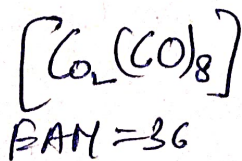 [Co₂(CO)₈]
EAN = 36